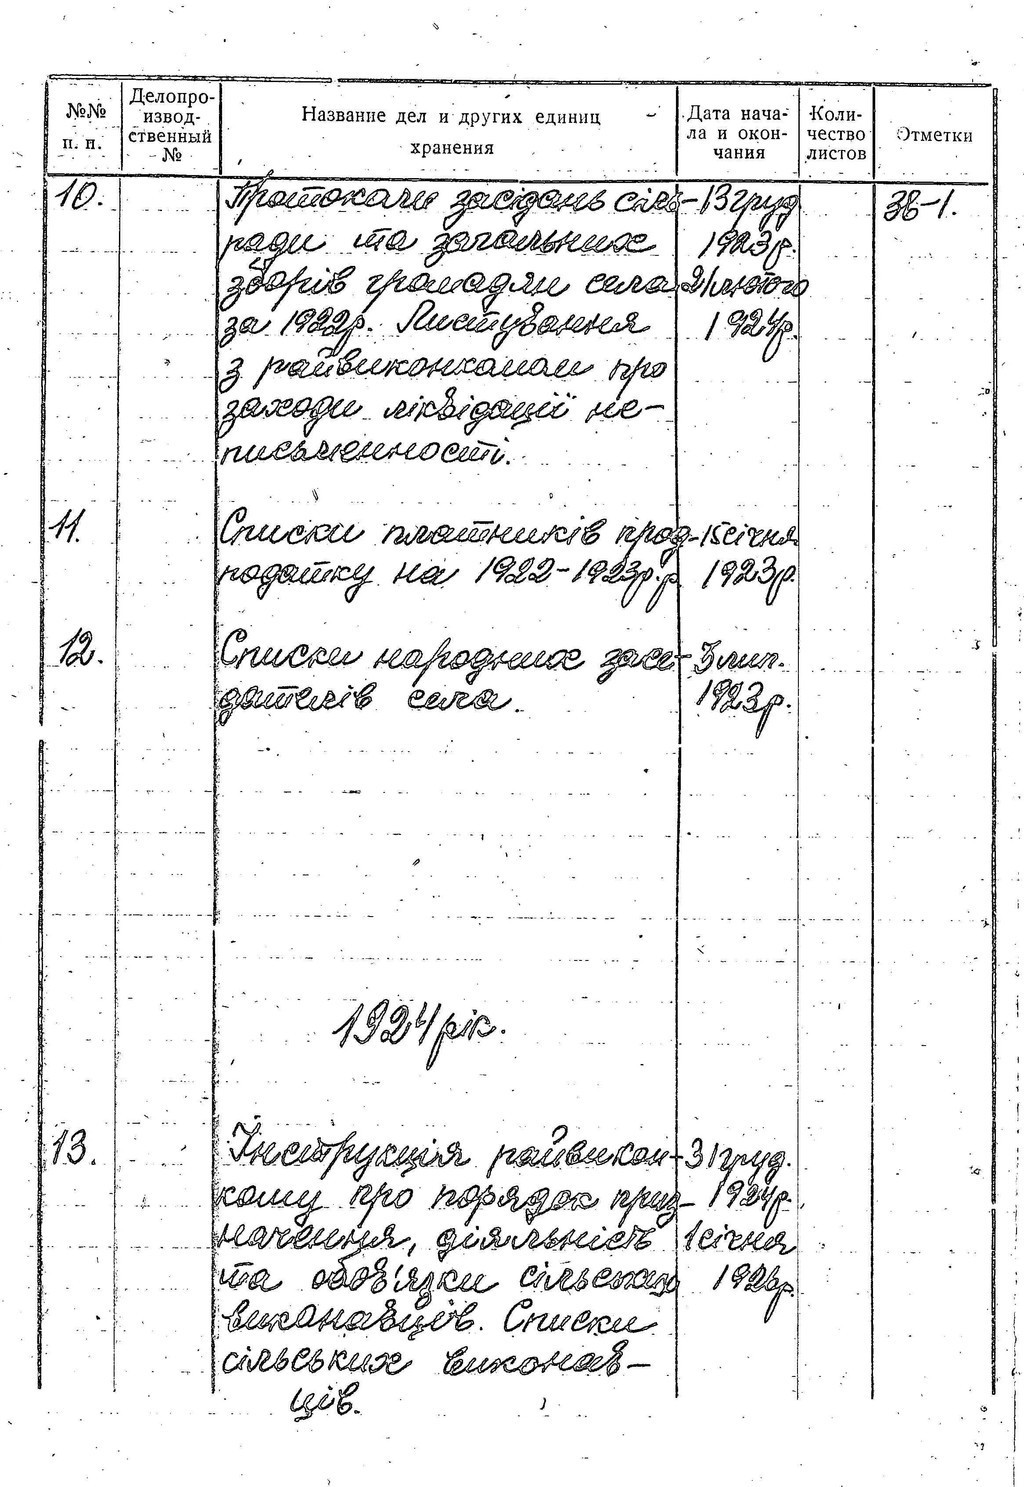 №№ п. п.
Делопроизводственный №
Название дел и других единиц хранения
Дата начала и окончания
Количество листов
Отметки
10. Протоколи засідань сіль- 13 груд 38-1.
ради та загальних 1923р.
зборів громадян села 21 лютого
за 1922р. Листування 1924р.
з райвиконкомом про
заходи ліквідації не-
письменности.
11. Списки платників прод- 15 січня
податку на 1922-1923р.р. 1923р.
12. Списки народних засе- 3 лип.
дателів села. 1923р.
1924 рік.
13. Інструкція райвикон- 31 груд.
кому про порядок приз- 1924р.
начення, діяльність 1 січня
та обов'язки сільських 1926р.
виконавців. Списки
сільських виконав-
ців.